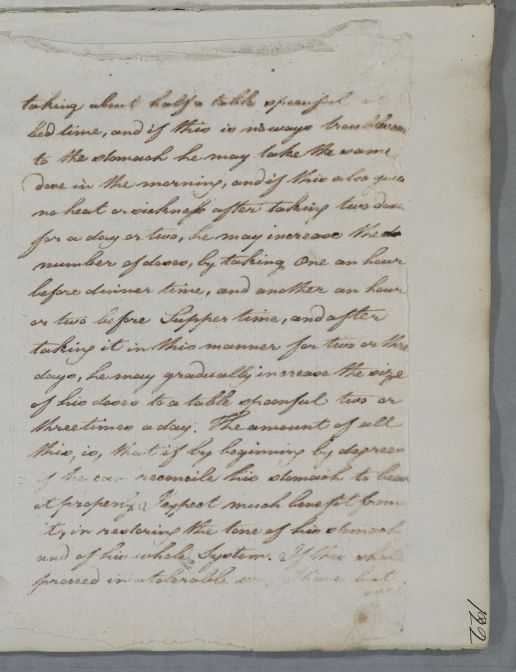 taking about half a table spoonful at
bed time, and if this is noways troublesom
to the stomach he may take the same
dose in the morning, and if this also give
no heat or sickness after taking two doses
for a day or two, he may increase the
number of doses, by taking One an hour
before dinner time, and another an hour
or two before Supper time, and after
taking it in this manner for two or thre
days, he may gradually increase the size
of his doses to a table spoonful two or
three times a day. The amount of all
this, is, that if by beginning by degrees
if he can reconcile his stomach to bear
it properly, I expect much benefit from
it, in restoring the tone of his stomach
and of his whole System. If this
proceed in a tolerable way I have but
122